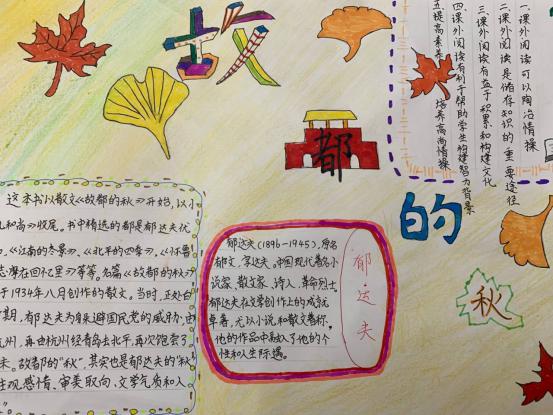 故
都
的
秋
一.课外阅读可以陶冶情操
二.课外阅读是储存知识的重要途径
三.课外阅读有益于积累和构建文化
四.课外阅读有利于帮助学生构建智力背景
五.提高素养 培养高尚情操
这本书以散文《故都的秋》开始,以小
和高》收尾。书中精选的都是郁达夫优
《江南的冬景》、《北平的四季》、《怀鲁
在回忆里》等等名篇《故都的秋》
于1934年八月创作的散文。当时,正处白
期,有郁达夫为躲避国民党的威胁,由
杭州,再由杭州经青岛去北平,再次饱尝了
故都的"秋",其实也是郁达夫的"秋"
主观感情、审美取向、文学气质和人
郁达夫
郁达夫(1896-1945),原名
郁文,字达夫。中国现代著名小
说家、散文家、诗人、革命烈士
郁达夫在文学创作上的成就
卓著,尤以小说和散文著称,
他的作品中融入了他的个
性和人生际遇。